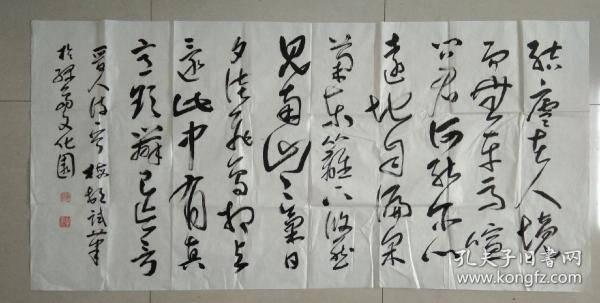 結廬在人境
而無車馬喧
问君何能尔心
遠地自偏采
菊東籬下悠然
見南山山氣日
夕佳飛鳥相與
還此中有真
意欲辯已忘言
晋人诗 試筆
於 文化園
孔夫子旧书网
www.kongfz.com